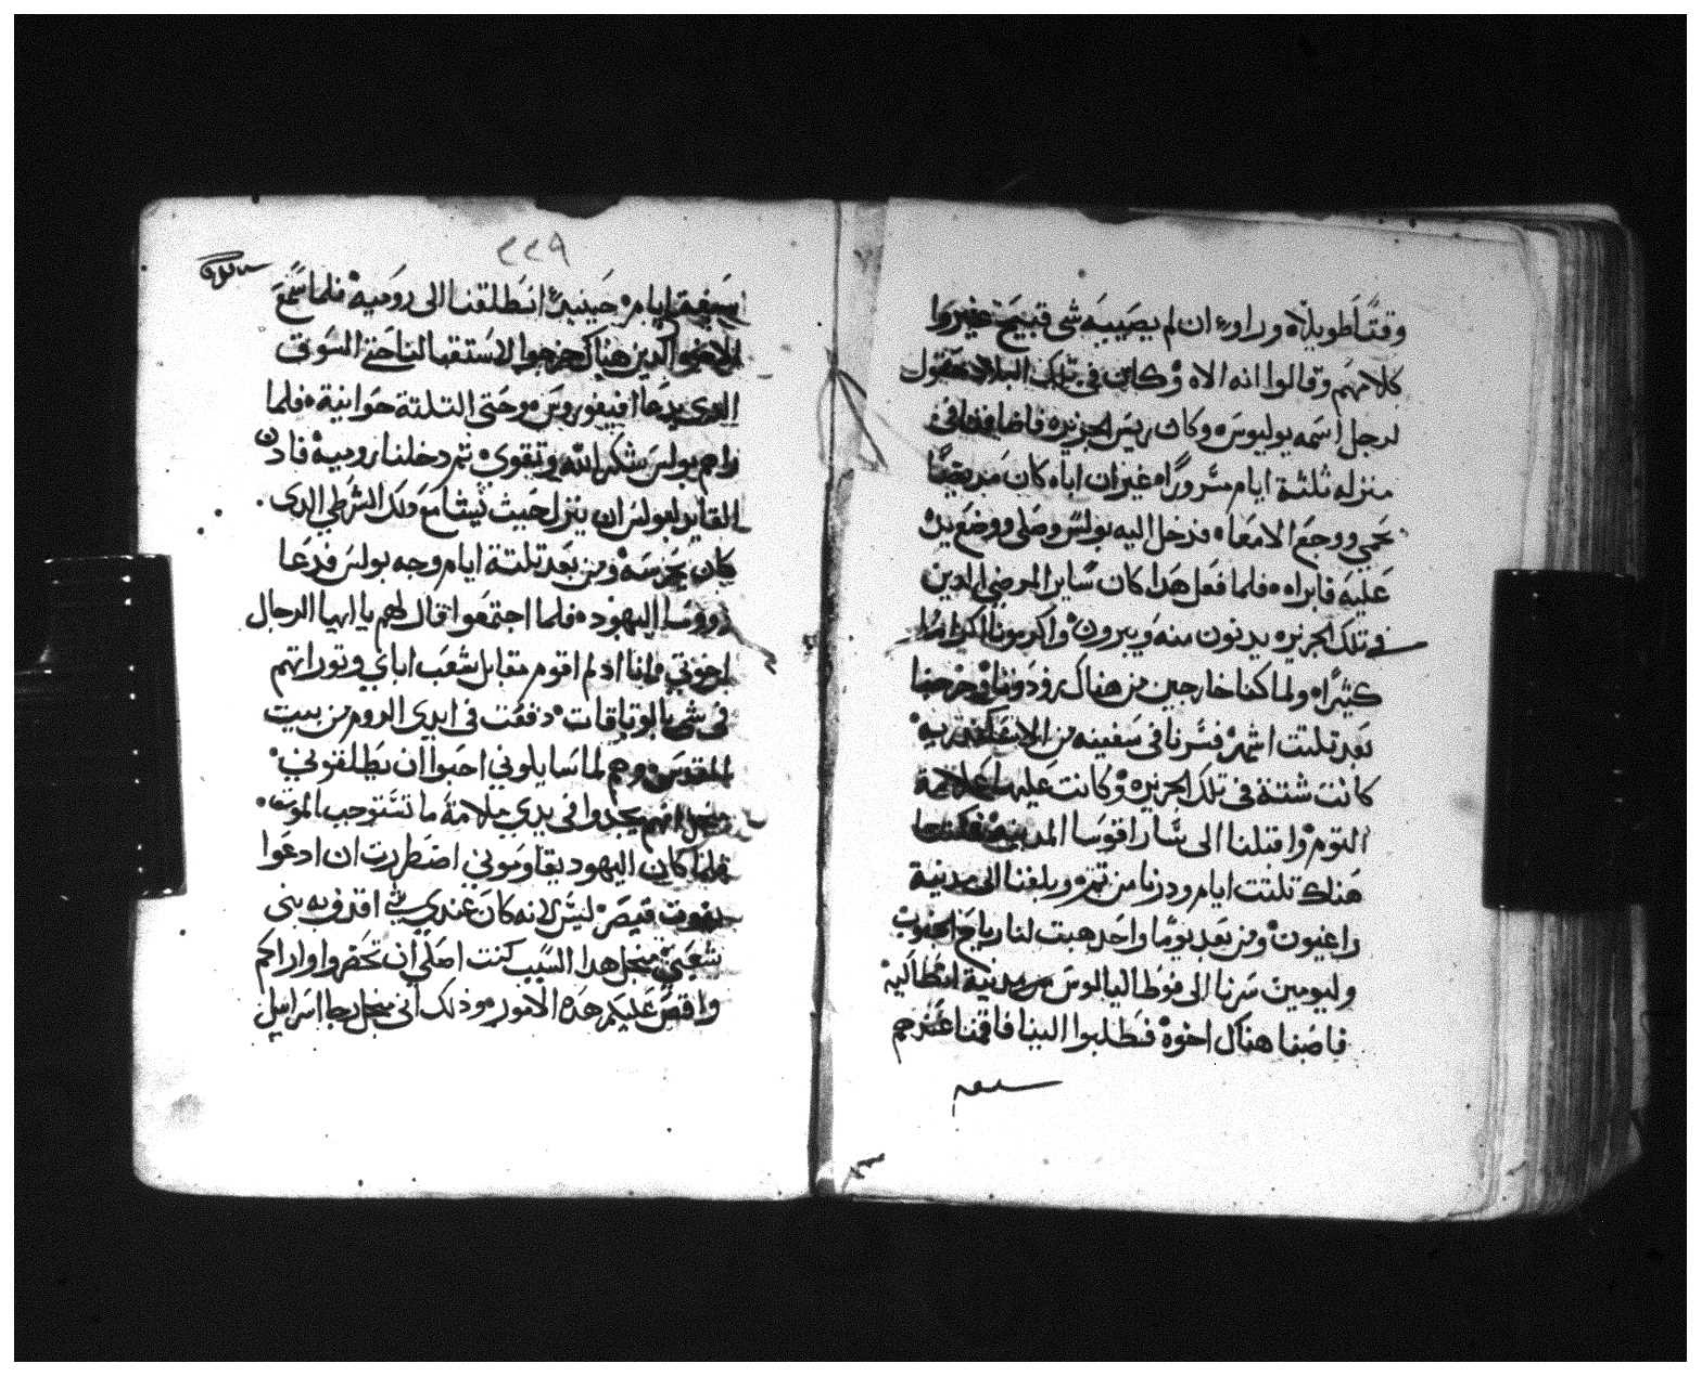 وقتًا طويلاه وراوه ان لم يصيبه شى قبيح غيروا
كلامهم وقالوا انه الاه وكان فى تلك البلاد حقول
لرجل اسمه بوليوس وكان ريس الجزيره فاضافنا فى
منزله ثلثة ايام مسرورًا غير ان اباه كان مريضًا
بحمي ووجع الامعاه فدخل اليه بولس وصلى ووضع يده
عليه فابراه فلما فعل هدا كان ساير المرضي الدين
في تلك الجزيره يدنون منه ويبرون واكرمونا اكرامًا
كثيرًا ولما كنا خارجين من هناك زودونا وخرجنا
بعد تلتت اشهر فسرنا فى سفينه من الاسكندريه
كانت شتتة فى تلك الجزيره وكانت عليها علامة
التوم واقبلنا الى ساراقوسا المدينه فمكثنا
هناك تلتت ايام ودرنا من تم وبلغنا الى مدينة
راغيون ومن بعد يومًا واحد هبت لنا رياح الجنوب
وليومين سرنا الى فوطياليوس من مدينة انطاليه
فاصبنا هناك اخوة فطلبوا الينا فاقمنا عندهم
سبعه
٢٢٩
سبعة ايام حينيد انطلقنا الى روميه فلما سمع
الاخوه الدين هناك خرجوا لاستقبالنا حتى السوق
الدى يدعا افيفوروس وحتى التلتة حوانية فلما
راهم بولس شكر الله وتقوي تم دخلنا رومية فادن
القايد لبولس ان ينزل حيث يشا مع ذلك الشرطي الدى
كان يحرسه ومن بعد تلتة ايام وجه بولس فدعا
رووسا اليهود فلما اجتمعوا قال لهم يا ايها الرجال
اخوتي وانا اد لم اقوم مقابل شعب اباي وتوراتهم
فى شى بالوتاقات دفعت فى ايدى الروم من بيت
المقدس وهم لما سايلوني احبوا ان يطلقوني
منجل انهم يجدوا فى يدي ملامة ما تستوجب الموت
فلما كان اليهود يقاوموني اضطررت ان ادعوا
بغوت قيصر ليس لانه كان عندي شى اقدف به بنى
شعبي منجل هدا السبب كنت اصلي ان تحضروا واراكم
واقص عليكم هده الامور وذلك انى منجل رجا اسراييل